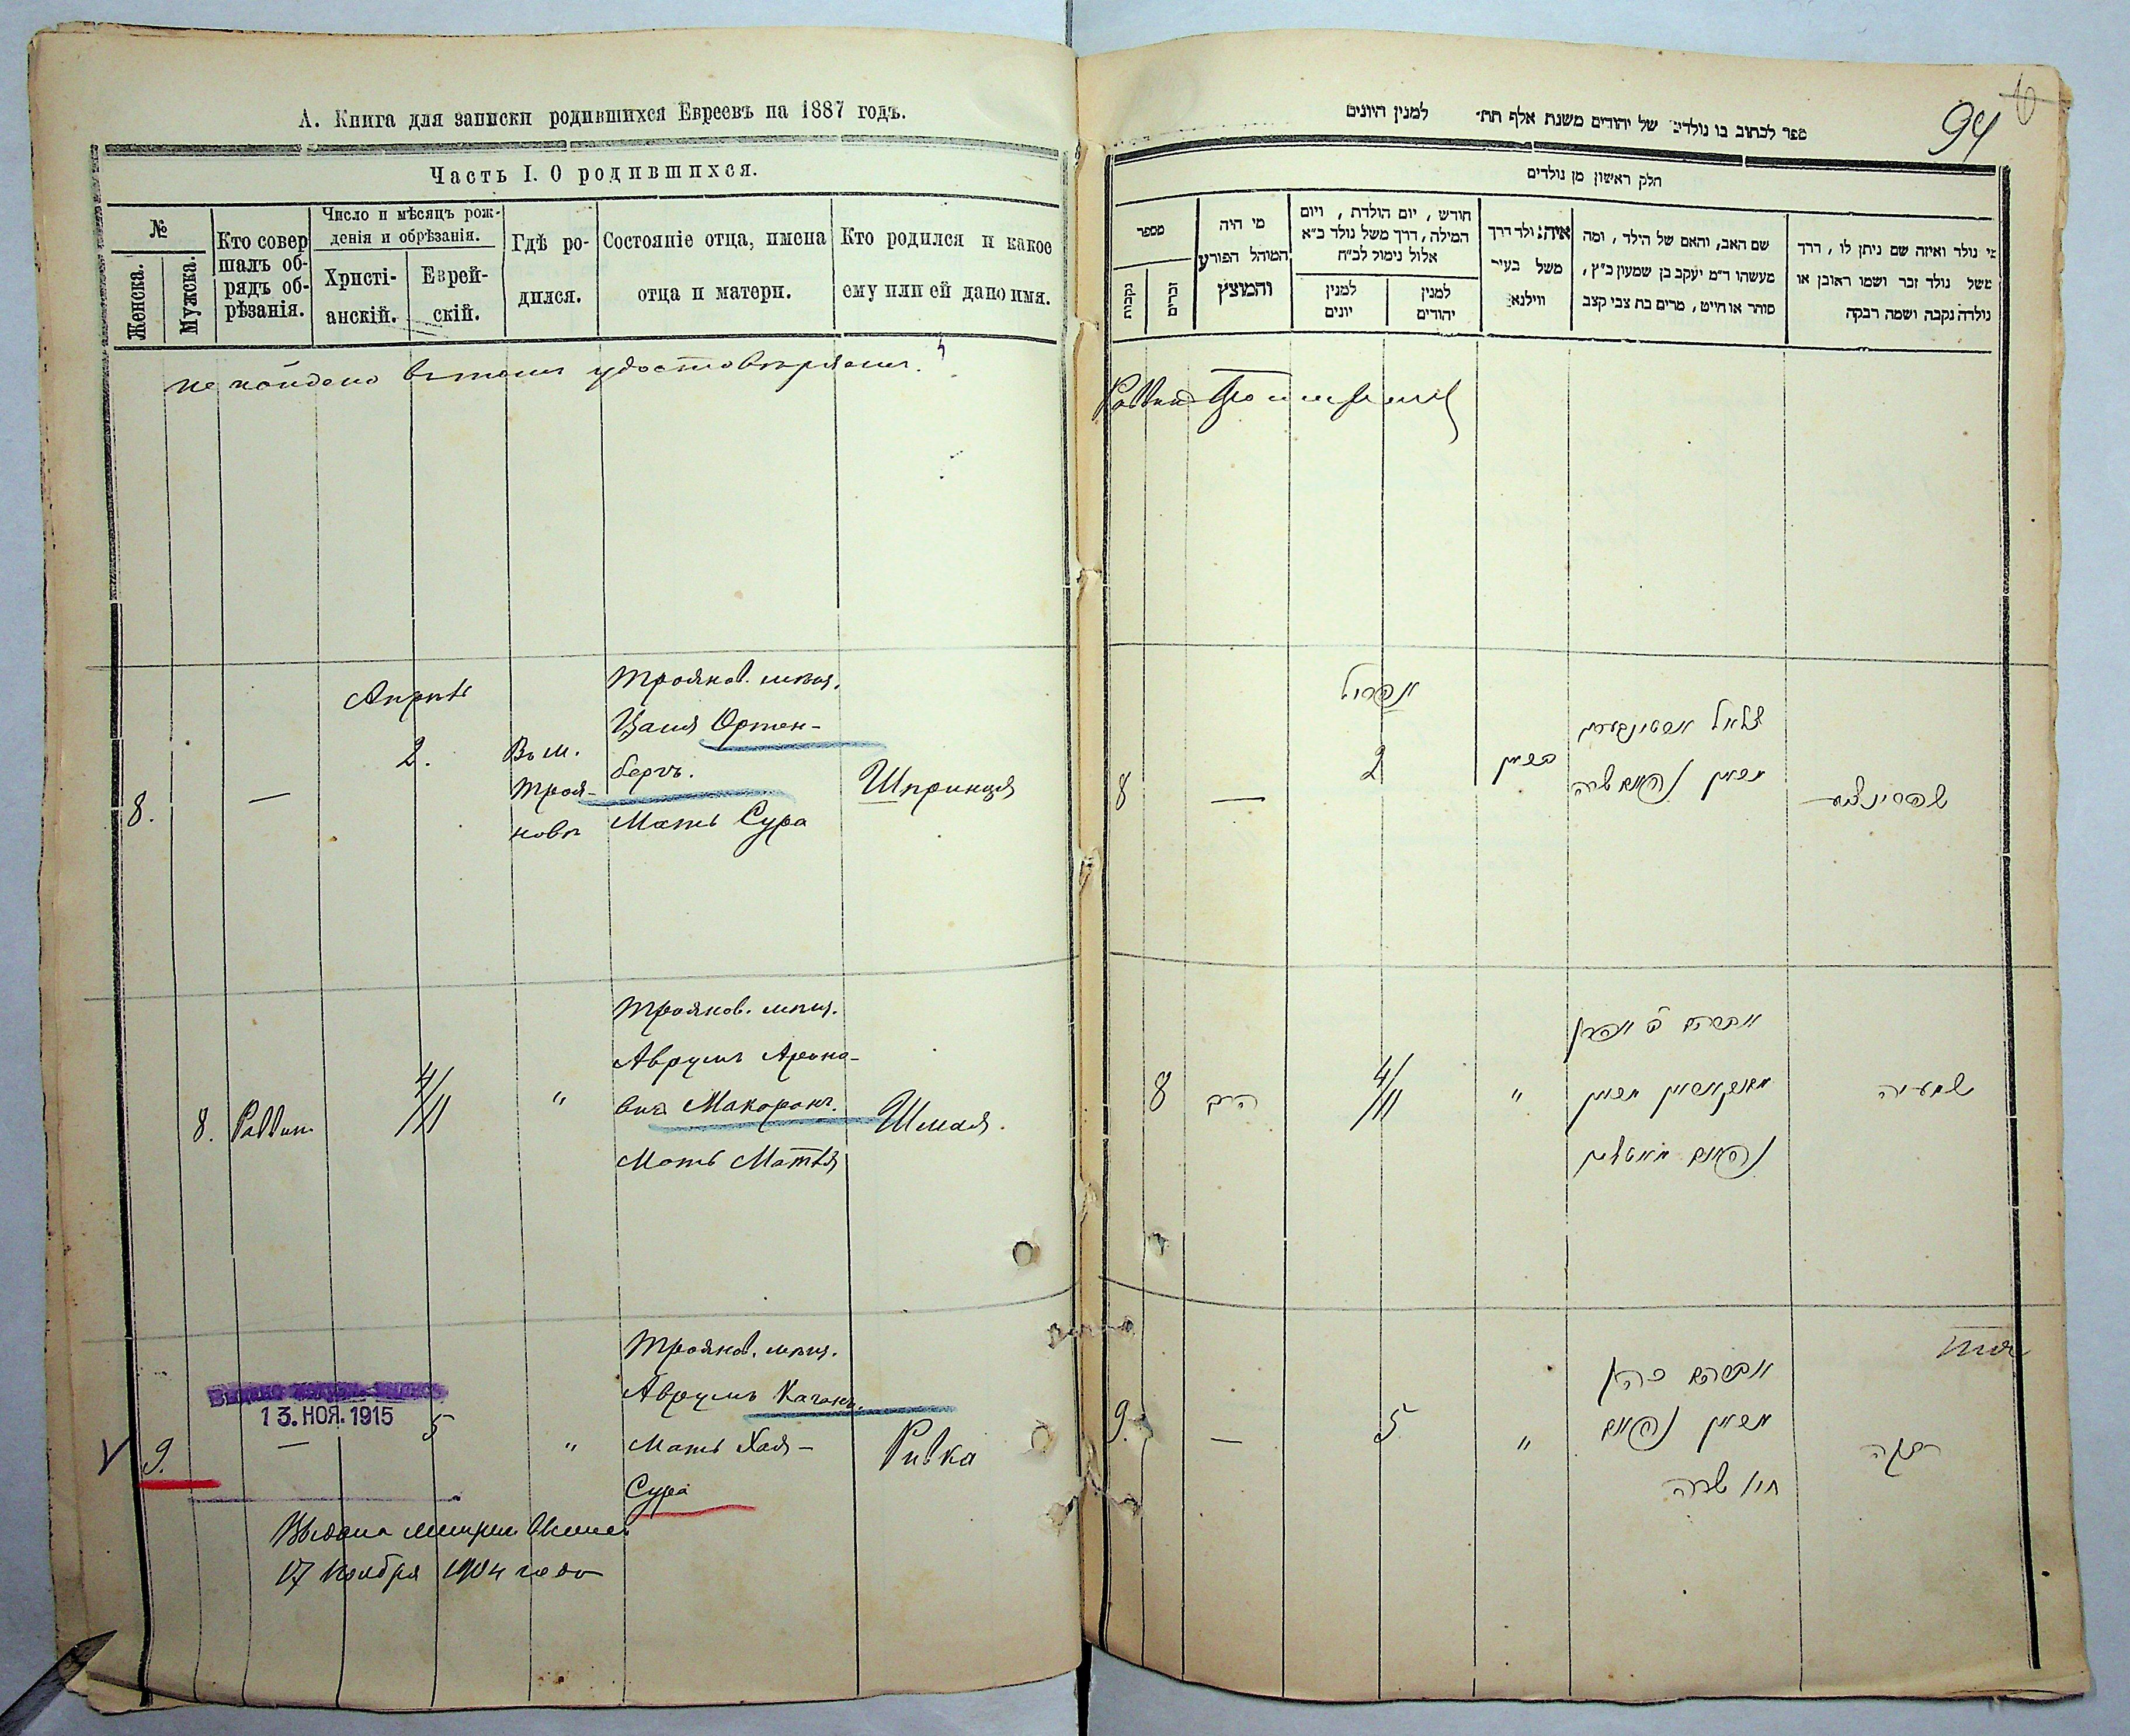 А. Книга для записки родившихся Евреевъ на 1887 годъ.
Часть I. О родившихся.
№
Женска.
Мужска.
Кто совер
шалъ об-
рядъ об-
рѣзанія.
Число и мѣсяцъ рож-
денія и обрѣзанія.
Христі-
анскій.
Еврей-
скій.
Гдѣ ро-
дился.
Состояніе отца, имена
отца и матери.
Кто родился и какое
ему или ей дано имя.
не найдено въ томъ удостовѣряемъ.
8.
—
Апрѣль
2.
Въ м.
Троя-
новѣ
Троянов. мѣщ.
Ортен-
бергъ.
Мать Сура
Шпринця
8.
Раввин
4/11
"
Троянов. мѣщ.
Аврумъ Ароно-
вич Макоронъ.
Мать Матля
Шмая.
13. НОЯ. 1915
9.
—
5
"
Троянов. мѣщ.
Аврумъ Каганъ.
Мать Хая-
Сура
Ривка
Выдана метрич. выпись
17 Ноября 1904 года
94
ספר לכתוב בו נולדים של יהודים משנת אלף תת״ למנין היונים
חלק ראשון מן נולדים
מספר
נקבות
זכרים
מי היה
המוהל הפורע
והמוצץ
חודש, יום הולדת, ויום
המילה, דרך משל נולד כ״א
אלול נימול לב״ח
למנין
יונים
למנין
יהודים
איה נולד דרך
משל בעיר
ווילנא
שם האב, והאם של הילד, ומה
מעשהו ד״מ יעקב בן שמעון כ״ץ,
סוחר או חייט, מרים בת צבי קצב
מי נולד ואיזה שם ניתן לו, דרך
משל נולד זכר ושמו ראובן או
נולדה נקבה ושמה רבקה
Раввин
8
—
אפריל
2
שפרינצע
8
הרב
4/11
"
אברהם ב אהרן
שמעיה
9.
—
5
"
אברהם כהן
חיה שרה
רבקה